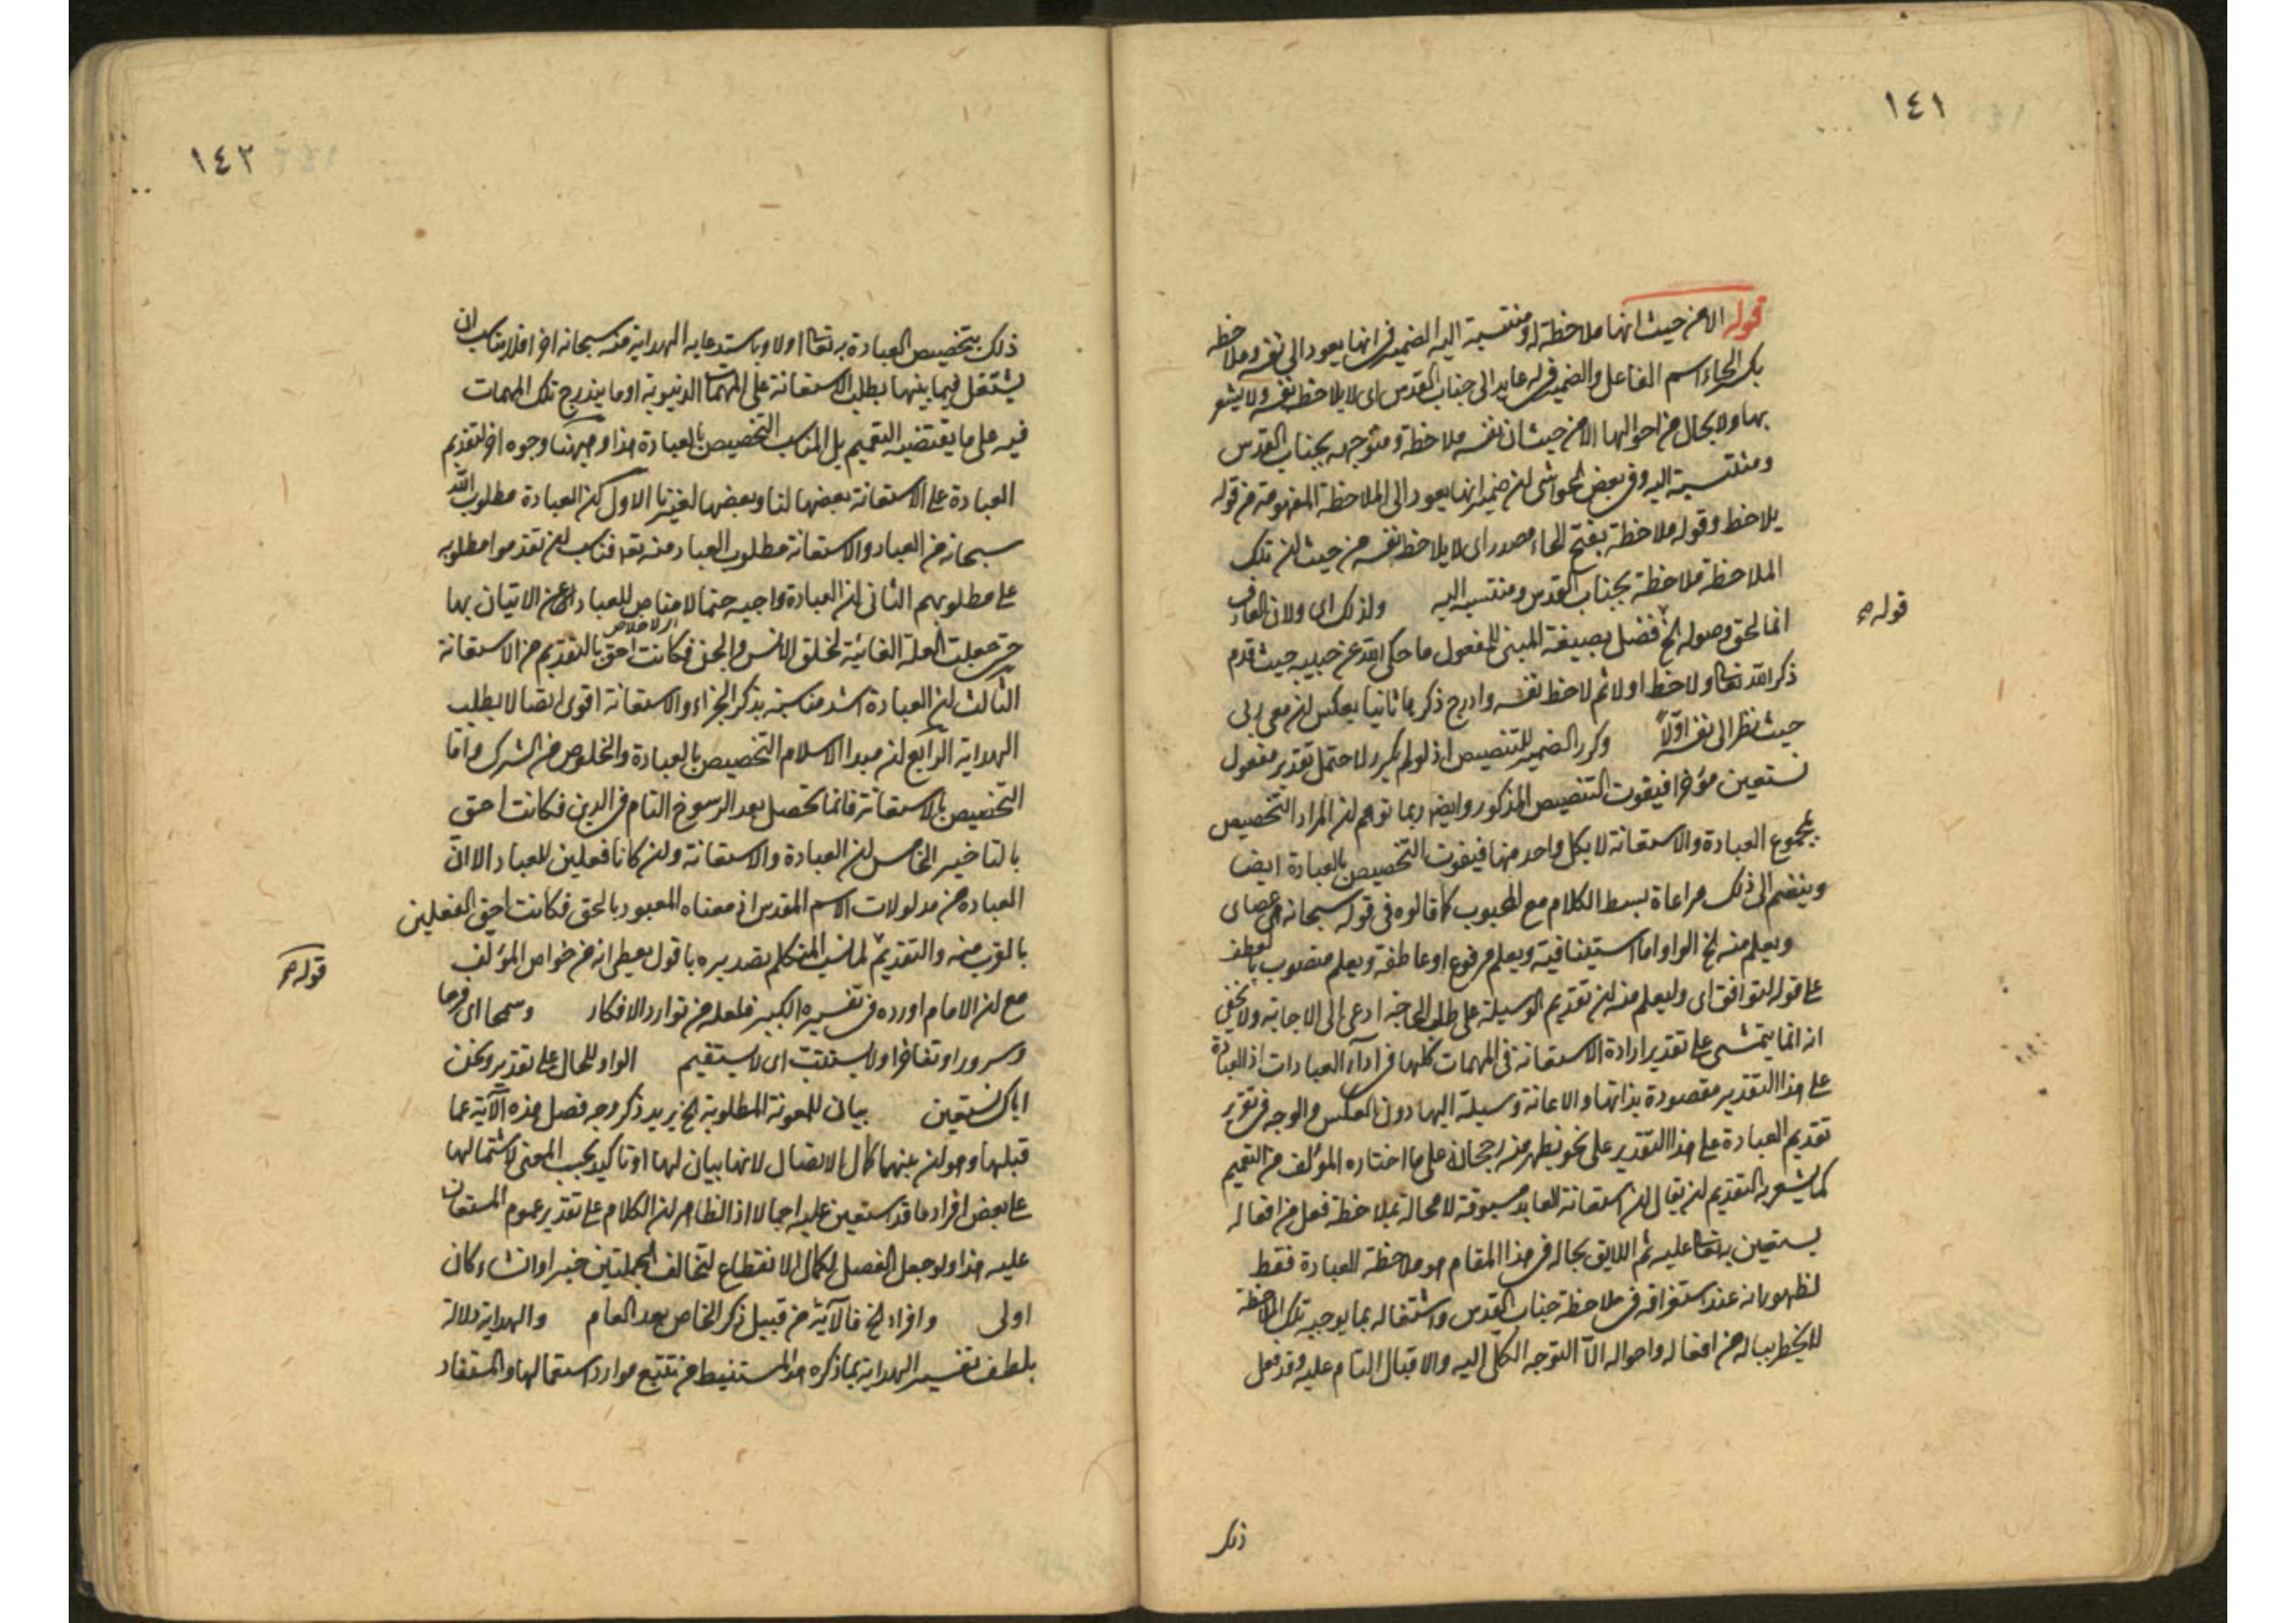 ١٤١
قوله الا من حيث انها ملاحظة له ومنتسبة اليه الضمير في انها يعود الى نفسه وملاحظه
بكسر الحاء اسم الفاعل والضمير في له عايد الى جناب القدس اى لا يلاحظ نفسه ولا يشعر
بها ولا بحال من احوالها الا من حيث ان نفسه ملاحظة ومتوجهه بجناب القدس
ومنتسبة اليه وفي بعض الحواشى ان ضمير انها يعود الى الملاحظة المفهومة من قوله
يلاحظ وقوله ملاحظة بفتح الحاء مصدر اى لا يلاحظ نفسه من حيث ان تلك
الملاحظة ملاحظة بجناب القدس ومنتسبة اليه ولذلك اى ولان العارف
قوله
انما لحق وصوله الخ فضل بصيغة المبنى للمفعول ما حكى الله عن حبيبه حيث قدم
ذكر الله تعالى ولاحظ اولا ثم لاحظ نفسه وادرج ذكرها ثانيا بعكس ان معى ربى
حيث نظر الى نفسه اوّلاً وكرر الضمير للتنصيص اذ لو لم يكرر لاحتمل تقدير مفعول
نستعين مؤخرا فيفوت التنصيص المذكور وايضا ربما توهم ان المراد التخصيص
بمجموع العبادة والاستعانة لا بكل واحد منها فيفوت التخصيص بالعبادة ايضا
وينضم الى ذلك مراعاة بسط الكلام مع المحبوب كما قالوه في قوله سبحانه هي عصاى
ويعلم منه الخ الواو اما استينافية ويعلم مرفوع او عاطفة ويعلم منصوب بالعطف
على قوله ليتوافق اى وليعلم منه ان تقديم الوسيلة على طلب الحاجة ادعى الى الاجابة ولا يخفى
انه انما يتمشى على تقدير ارادة الاستعانة في المهمات كلها في اداء العبادات اذ العبادة
على هذا التقدير مقصودة بذاتها والاعانة وسيلة اليها دون العكس والوجه في تقرير
تقديم العبادة على هذا التقدير على نحو يظهر منه رجحانه على ما اختاره المؤلف من التعميم
كما يشعر به التقديم ان يقال ان استعانة العابد مسبوقة لا محالة بملاحظة فعل من افعاله
يستعين به تعالى عليه ثم اللايق بحاله في هذا المقام هو ملاحظة للعبادة فقط
لظهور انه عند استغراقه في ملاحظة جناب القدس واشتغاله بما يوجبه تلك الملاحظة
لا يخطر بباله من افعاله واحواله الا التوجه الكلى اليه والاقبال التام عليه وقد فعل
ذلك
١٤٢
ذلك بتخصيص العبادة به تعالى اولا وباستدعايه الهداية منه سبحانه اخرا فلا يناسب ان
يشتغل فيما بينهما بطلب الاستعانة على المهمات الدنيوية او ما يندرج تلك المهمات
فيه على ما يقتضيه التعميم بل المناسب التخصيص بالعبادة هذا وههنا وجوه اخر لتقديم
العبادة على الاستعانة بعضها لنا وبعضها لغيرنا الاول ان العبادة مطلوب الله
سبحانه من العباد والاستعانة مطلوب العباد منه تعالى فناسب ان تقدموا مطلوبه
على مطلوبهم الثانى ان العبادة واجبه حتما لا مناص للعباد عن الاتيان بها
الاخلاص
حتى جعلت العلة الغائية لخلق الانس والجن فكانت احق بالتقديم من الاستعانة
الثالث ان العبادة اشد مناسبة بذكر الجزاء والاستعانة اقوى اتصالا بطلب
الهداية الرابع ان مبدا الاسلام التخصيص بالعبادة والخلوص من الشرك واما
التخصيص بالاستعانة فانما تحصل بعد الرسوخ التام في الدين فكانت احق
بالتاخير الخامس ان العبادة والاستعانة وان كانا فعلين للعباد الا ان
العباده من مدلولات الاسم المقدس اذ معناه المعبود بالحق فكانت احق الفعلين
قوله
بالقرب منه والتقديم لما نسب المتكلم تصديره باقول يعطى انه من خواص المؤلف
مع ان الامام اورده في تفسيره الكبير فلعله من توارد الافكار وبتجحا اى فرحا
وسرورا وتفاخرا ولا يستتب اى لا يستقيم الواو للحال على تقدير ونحن
اياك نستعين بيان للمعونة المطلوبة الخ يريد ذكر وجه فصل هذه الآية عما
قبلها وهو ان بينهما كمال الاتصال لانها بيان لها او تاكيد بحسب المعنى لاشتمالها
على بعض افراد ما قد استعين عليه اجمالا اذ الظاهر ان الكلام على تقدير عموم المستعان
عليه هذا ولو جعل الفصل لكمال الانقطاع لتخالف الجملتين خبرا وانشاء كان
اولى وافراد الخ فالآية من قبيل ذكر الخاص بعد العام والهداية دلالة
بلطف تفسير الهداية بما ذكره هو المستنبط من تتبع موارد استعمالها والمستفاد